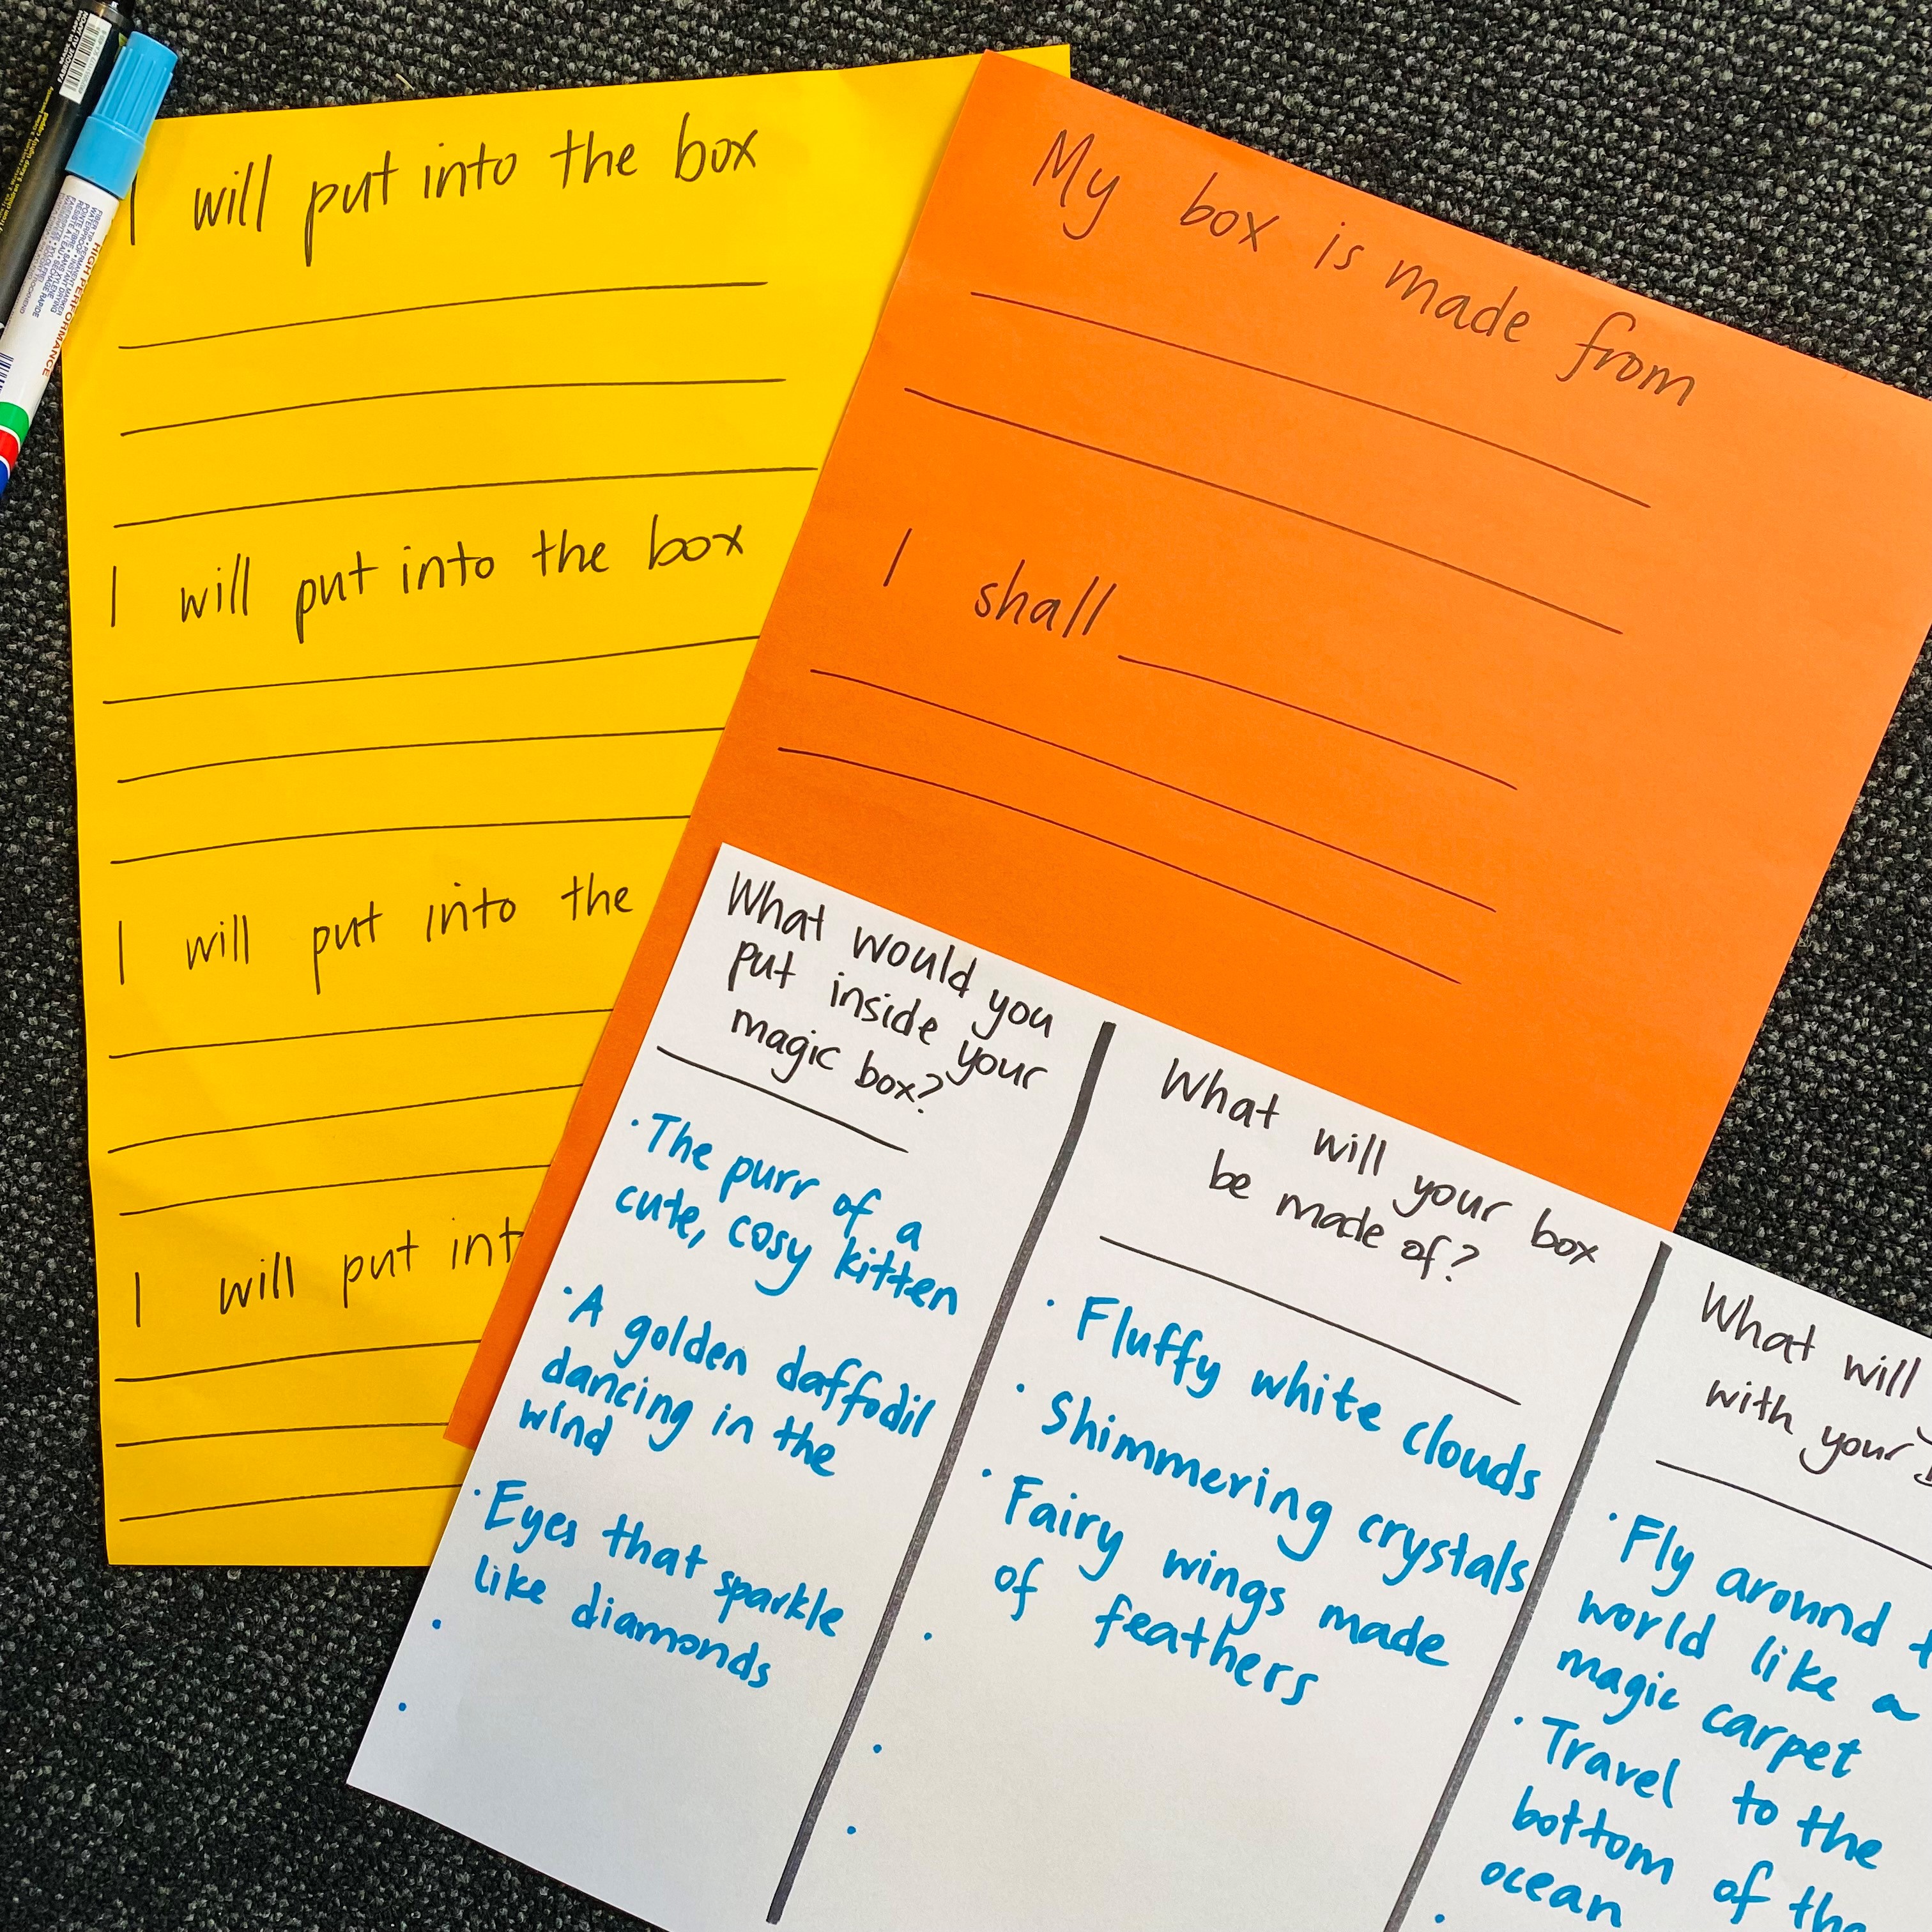 I will put into the box
I will put into the box
I will put into the
I will put
My box is made from
I shall
What would you
put inside your
magic box?
· The purr of a
cute, cosy kitten
· A golden daffodil
dancing in the
wind
· Eyes that sparkle
like diamonds
What will your box
be made of?
· Fluffy white clouds
· Shimmering crystals
· Fairy wings made
of feathers
What will
with your
· Fly around
world like a
magic carpet
· Travel to the
bottom of the
ocean
HIGH PERFORMANCE